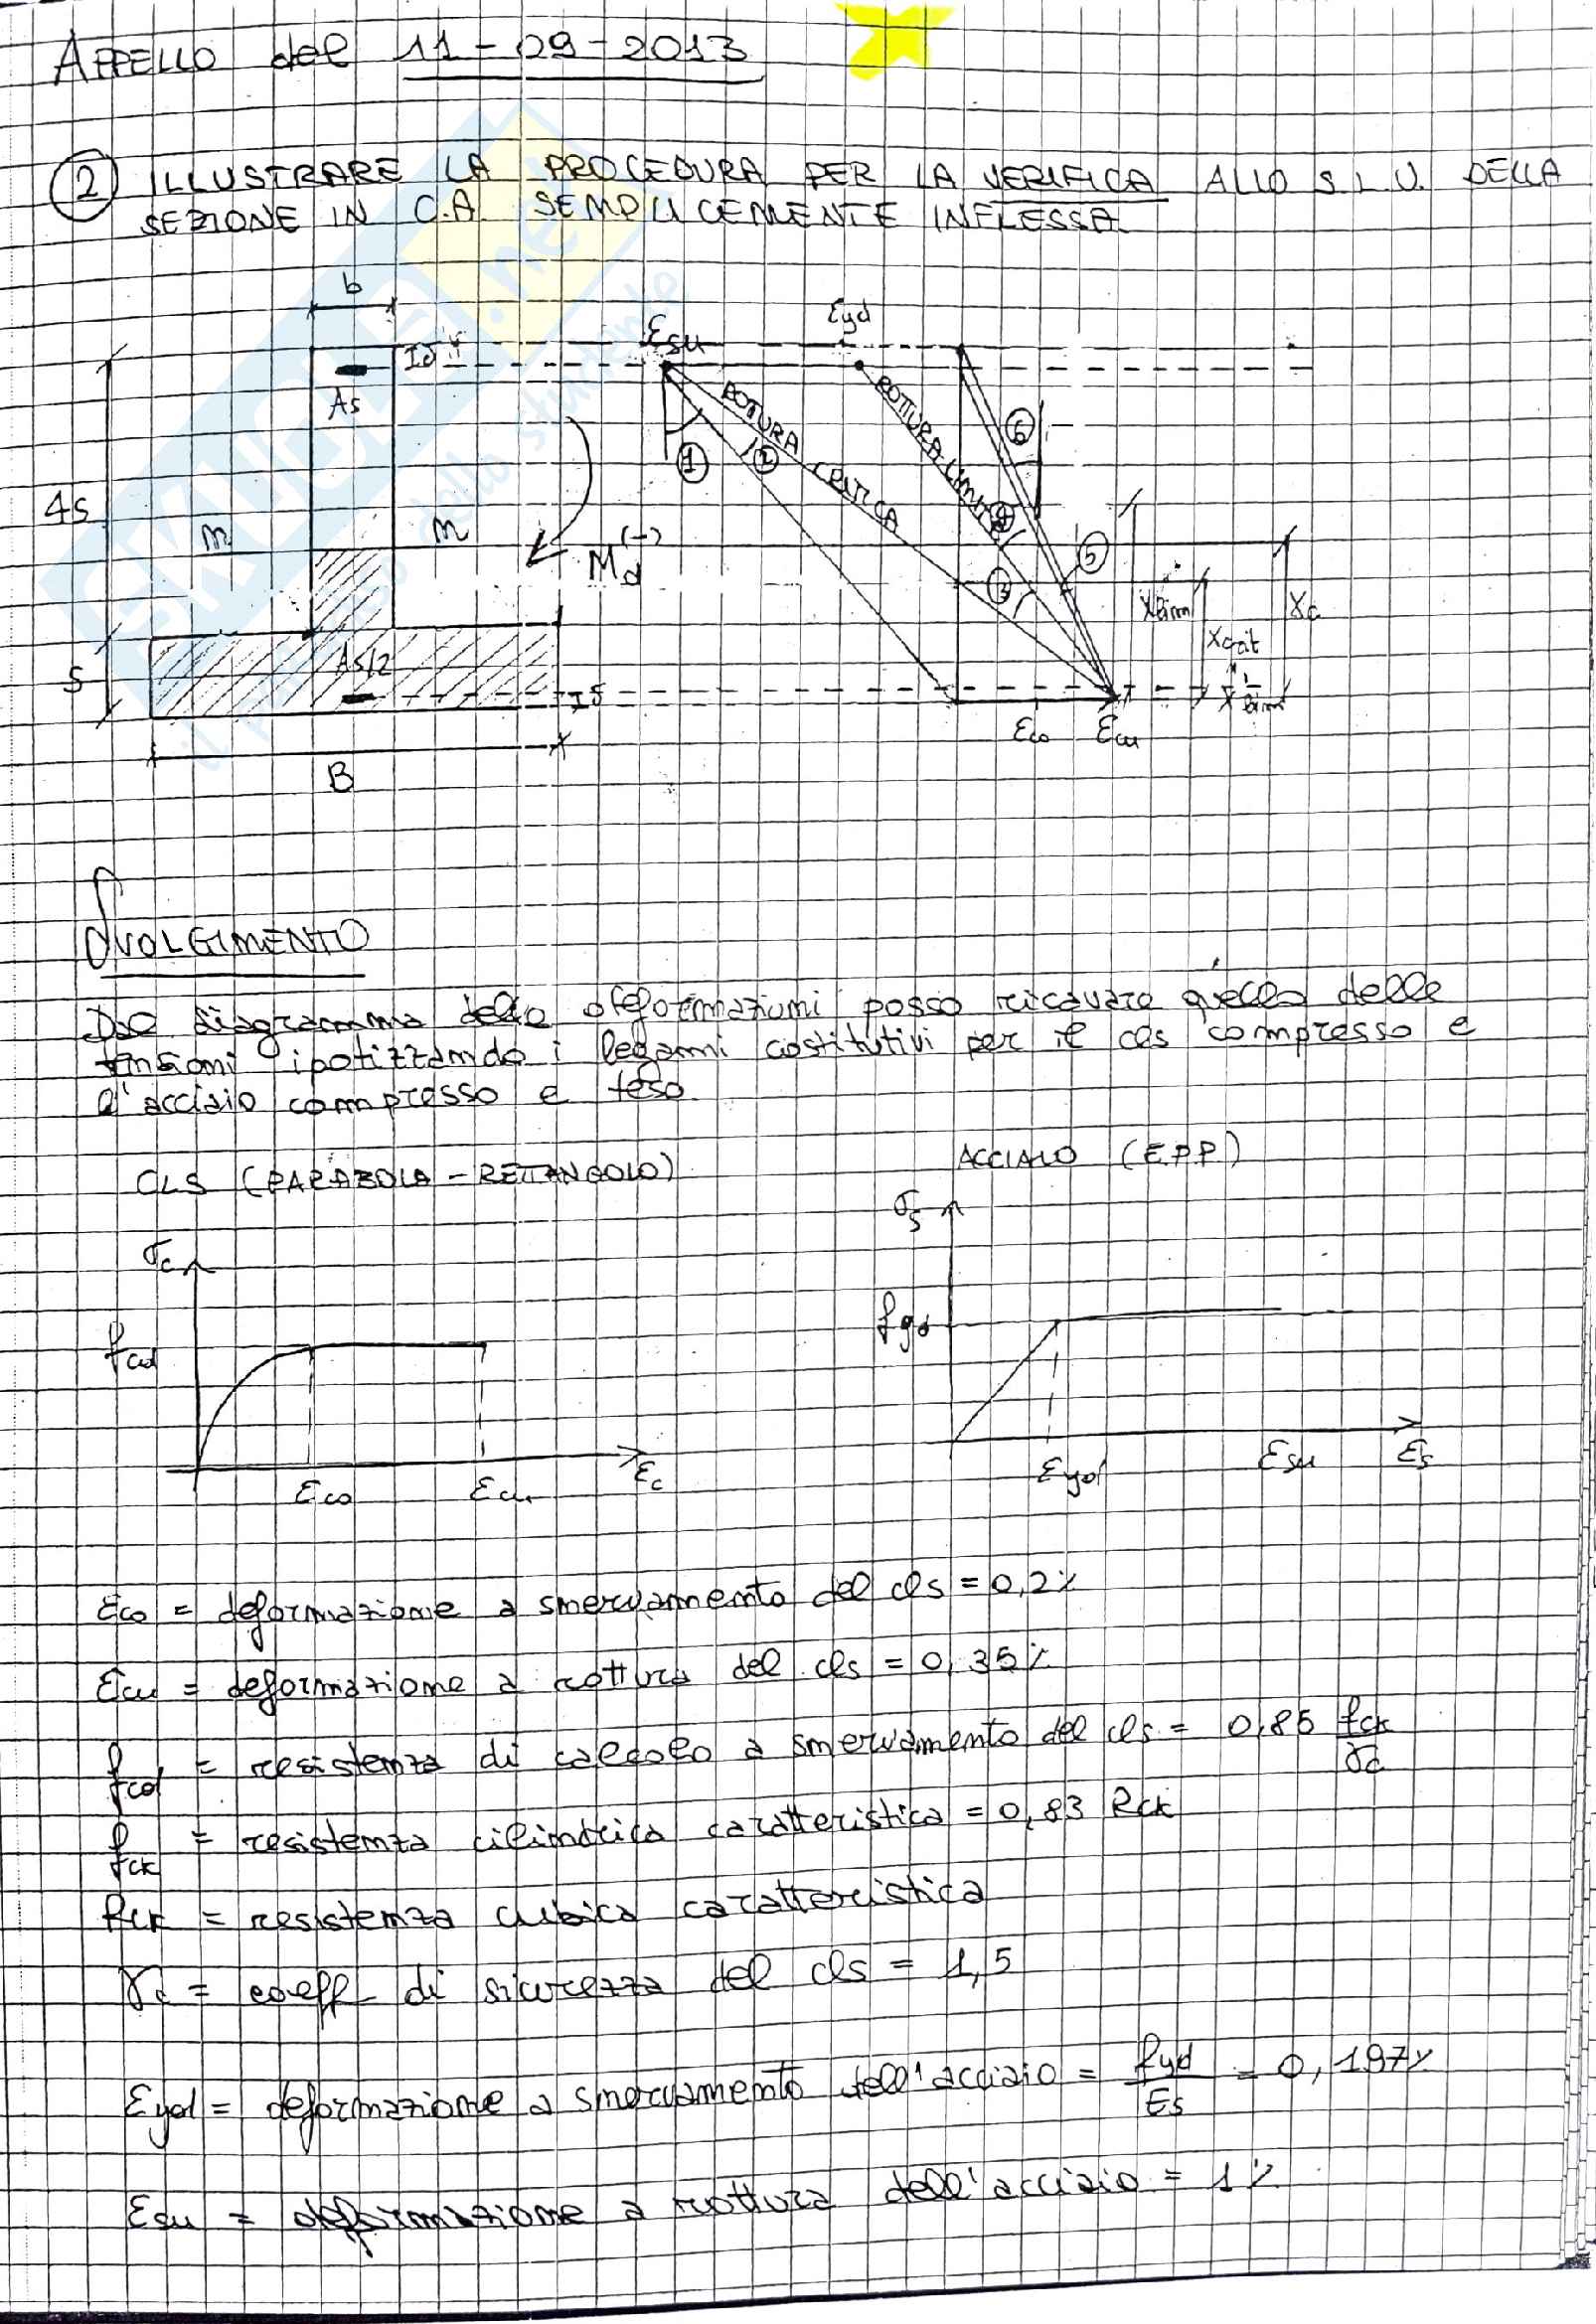 APPELLO del 11-09-2013
② ILLUSTRARE LA PROCEDURA PER LA VERIFICA ALLO S.L.U. DELLA
SEZIONE IN C.A. SEMPLICEMENTE INFLESSA.
b
εsu
εyd
As
4s
n
n
Md(-)
ROTTURA CRITICA
ROTTURA LIMITE
①
②
③
④
⑤
⑥
Xlim
Xcrit
Xc
X'lim
s
As/2
εco
εcu
B
SVOLGIMENTO
Dal diagramma delle deformazioni posso ricavare quello delle
tensioni ipotizzando i legami costitutivi per il cls compresso e
l'acciaio compresso e teso.
CLS (PARABOLA - RETTANGOLO)
ACCIAIO (E.P.P.)
σc
fcd
εco
εcu
εc
σs
fyd
εyd
εsu
εs
εco = deformazione a snervamento del cls = 0,2%
εcu = deformazione a rottura del cls = 0,35%
fcd = resistenza di calcolo a snervamento del cls = 0,85 fck/γc
fck = resistenza cilindrica caratteristica = 0,83 Rck
Rck = resistenza cubica caratteristica
γc = coeff. di sicurezza del cls = 1,5
εyd = deformazione a snervamento dell'acciaio = fyd/Es = 0,197%
εsu = deformazione a rottura dell'acciaio = 1%